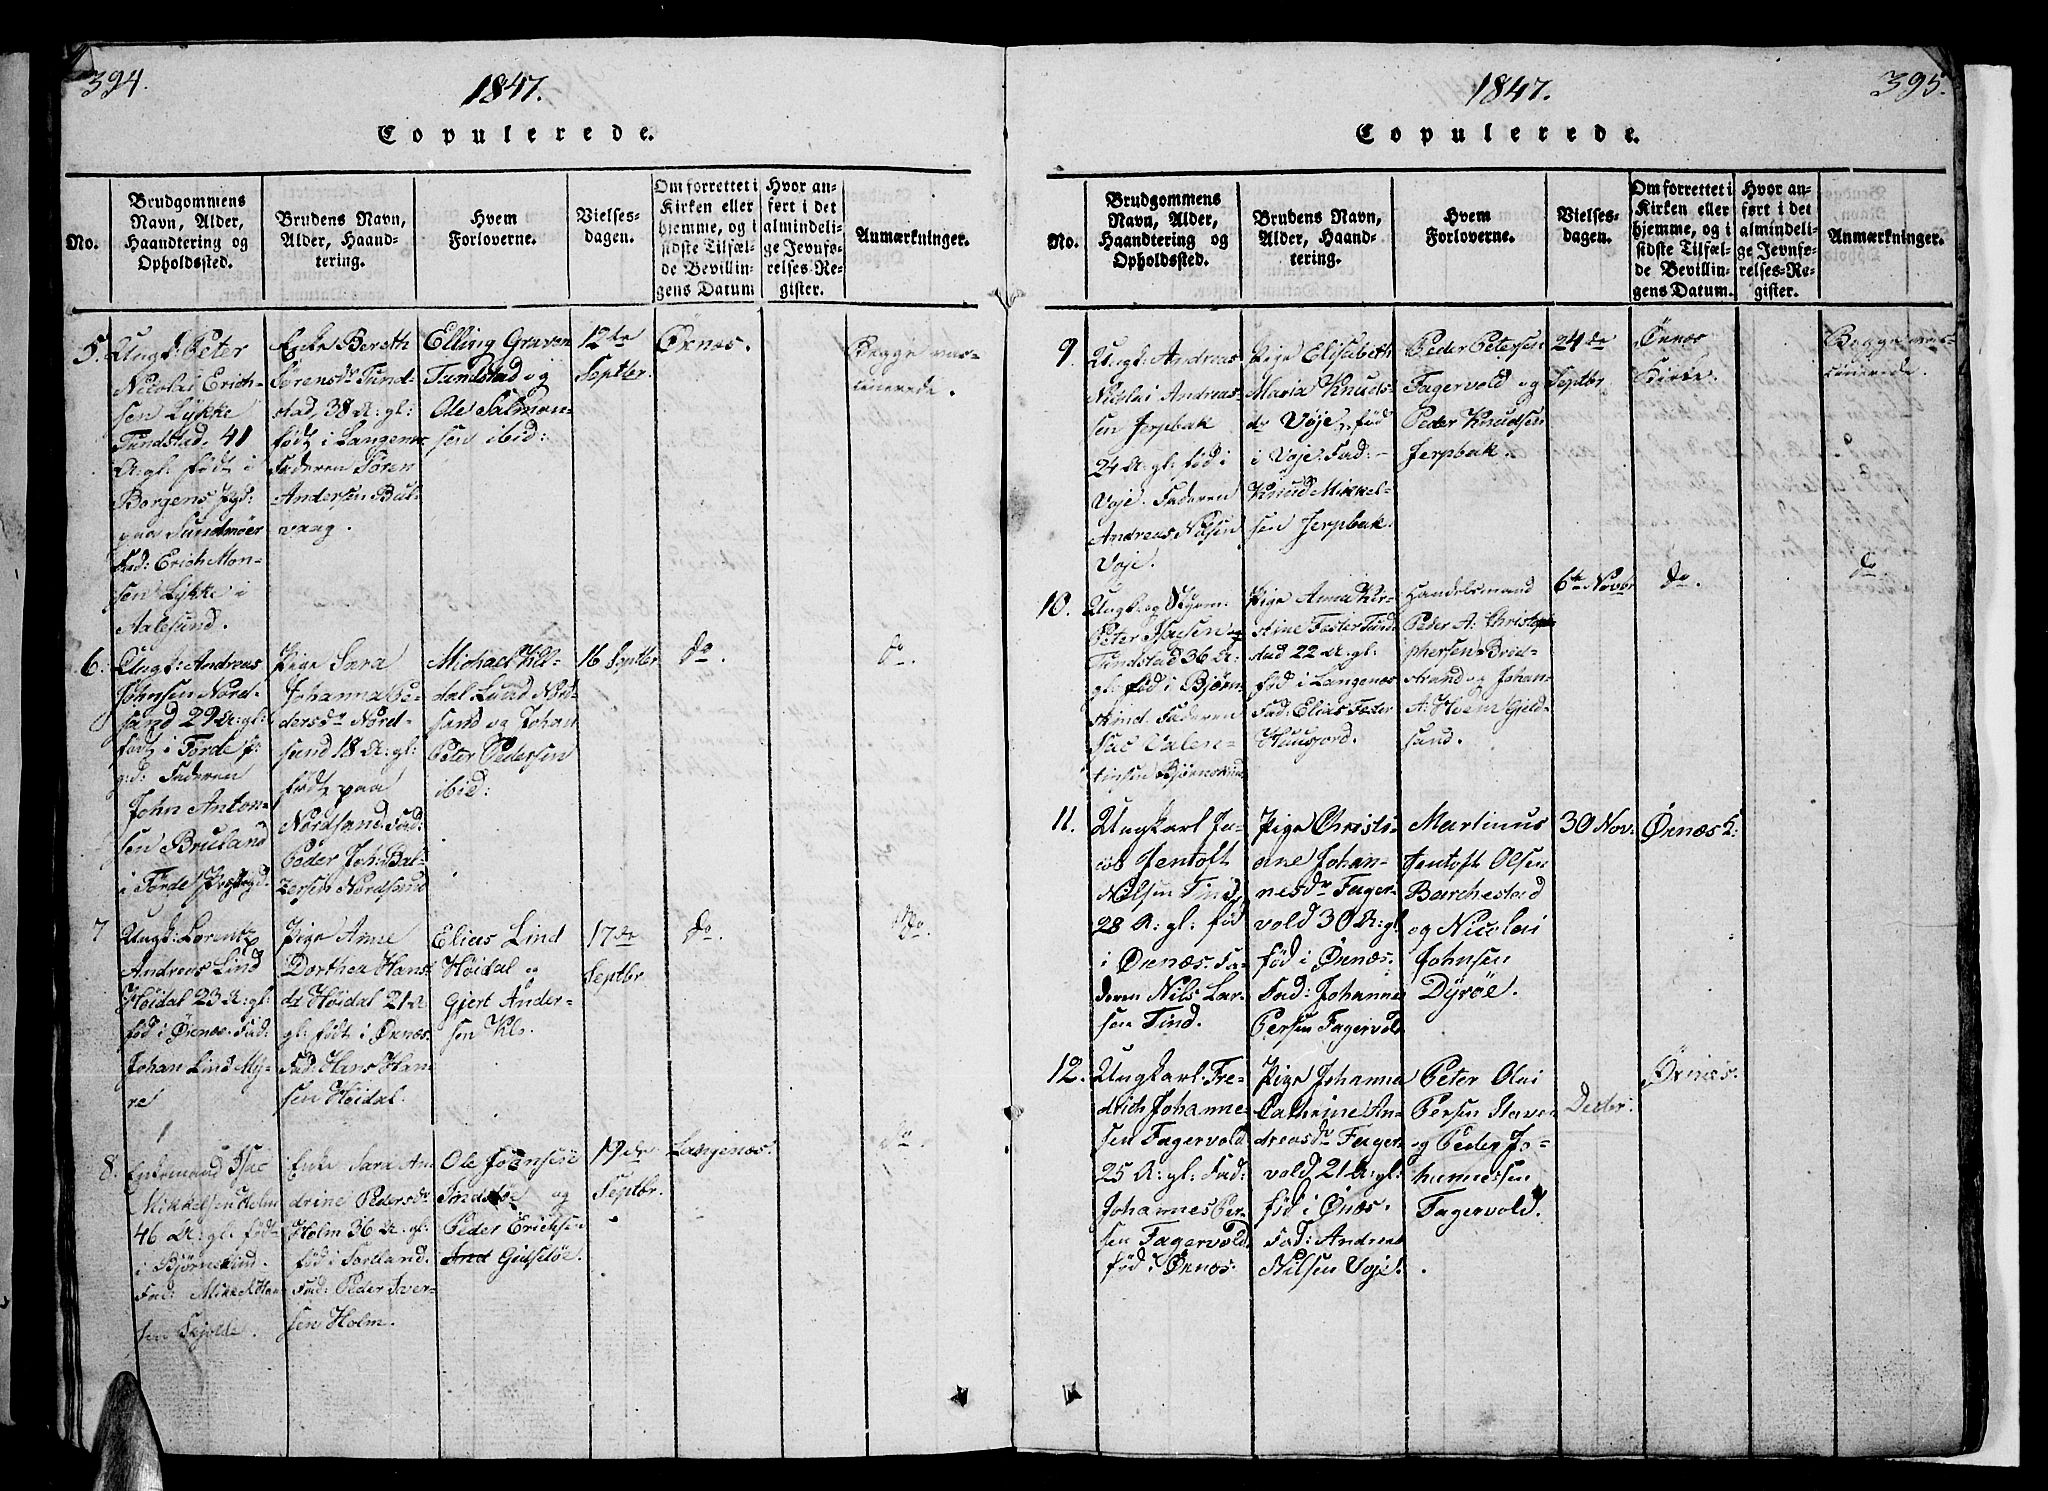 394.
1847.
Copulerede.
No.
Brudgommens
Navn, Alder,
Haandtering og
Opholdssted.
Brudens Navn,
Alder, Haand-
tering.
Hvem
Forloverne.
Vielses-
dagen.
Om forrettet i
Kirken eller
hjemme, og i
sidste Tilfæl-
de Bevillin-
gens Datum
Hvor an-
ført i det
almindeli-
ge Jevnfø-
relses-Re-
gister.
Anmærkninger.
5.
Ungk: Peter
Nicolai Erich-
sen Lykke
Tundstad. 41
A: gl: født i
Borgens Pgd:
paa Sundmöer
Fad: Erich Mon-
sen Lykke i
Aalesund.
Enke Bereth
Sørensdr Tund-
stad, 38 A: gl:
født i Langenæs
Faderen Søren
Andersen Bul-
vaag.
Elling Graven
Tundstad og
Ole Salmon-
sen ibid:
12te
Septbr.
Öxnæs.
Begge vac-
cinerede.
6.
Ungk: Andreas
Johnsen Nord-
sand 29 A: gl:
født i Førde P:
gd: Faderen
John Anton-
sen Bruland
i Førde Præstegd.
Pige Sara
Johanna Pe-
dersdr Nord-
sund 18 A: gl:
født paa
Nordsand. Fad:
Peder Joh: Bal-
zersen Nordsand
Michael
dal Lund Nord-
sand og Johan
Peter Pedersen
ibid:
16 Septbr
do.
do.
7
Ungk: Lorentz
Andreas Lind
Høidal 23 A: gl:
fød i Öxnæs. Fad:
Johan Lind My-
re
Pige Anne
Dorthea Hans-
dr Høidal 21 A:
gl: født i Öxnæs.
Fad: Hans Han-
sen Høidal.
Elias Lind
Høidal og
Gjert Ander-
sen Klo.
17de
Septbr.
do.
do.
8.
Enkemand Isac
Mikkelsen Holm
46 A: gl: født
i Bjørnskind.
Fad: Mikkel Han-
sen Skjolde.
Enke Sara An-
drine Pedersdr
Holm 36 A: gl:
fød i Sortland.
Fad: Peder Iver-
sen Holm.
Ole
og
Peder Erichsen
And Gidseløe.
19de
Septbr.
Langenæs.
do
395.
1847.
Copulerede.
No.
Brudgommens
Navn, Alder,
Haandtering og
Opholdssted.
Brudens Navn,
Alder, Haand-
tering.
Hvem
Forloverne.
Vielses-
dagen.
Om forrettet i
Kirken eller
hjemme, og i
sidste Tilfæl-
de Bevillin-
gens Datum.
Hvor an-
ført i det
almindeli-
ge Jevnfø-
relses-Re-
gister.
Anmærkninger.
9
Ungk: Andreas
Nicolai Andreas-
sen Jerpbak
24 A: gl: fød i
Voje. Faderen
Andreas Nilsen
Voje.
Pige Elisabeth
Maria Knuds-
dr Vöje, fød
i Voje. Fad:-
Knud Mikkel-
sen Jerpbak
Peder Petersen
Fagervold og
Peder Knudsen
Jerpbak.
24de
Septbr
Öxnæs
Kirke.
Begge vac-
cinerede.
10.
Ungk: og
Peter
Tundstad 36 A:
gl: fød i Bjørn-
skind. Faderen
Isac Valen-
tinsen Bjørnskind
Pige Anna Kir-
stine Foster Tund-
stad 22 A: gl:
fød i Langenæs
Fad: Elias Foster
Haugjord.
Handelsmand
Peder A: Christo-
phersen Bred-
strand og Johan
A: Hveen Gjeld-
sand.
6te Novbr
do.
do
11.
Ungkarl Ja-
cob Jentoft
Nilsen Tind,
28 A: gl: fød
i Öxnæs. Fa-
deren Nils Lar-
sen Tind.
Pige Christi-
ane Johan-
nesdr Fager-
vold 30 A: gl
fød i Öxnæs.
Fad: Johannes
Persen Fagervold
Martinus
Jentoft Olsen
Barchestad
og Nicolai
Johnsen
Dyrøe.
30 Nov:
Öxnæs K:
12.
Ungkarl: Fre-
drich Johanne-
sen Fagervold
25 A: gl. Fad:
Johannes Per-
sen Fagervold.
fød i Öxnæs.
Pige Johanna
Cathrine An-
dreasdr Fager-
vold 21 A: gl:
fød i Öxnæs.
Fad: Andreas
Nilsen Voje.
Peter Olai
Persen Staven
og Peder Jo-
hannessen
Fagervold.
Decbr:
Öxnæs.